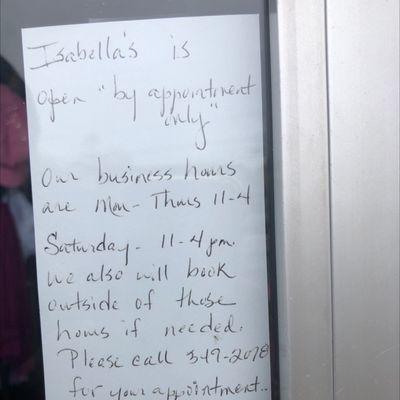 Isabella's is
open "by appointment
only"
Our business hours
are Mon- Thurs 11-4
Saturday- 11-4 pm.
we also will book
outside of those
hours if needed.
Please call 347-2078
for your appointment..